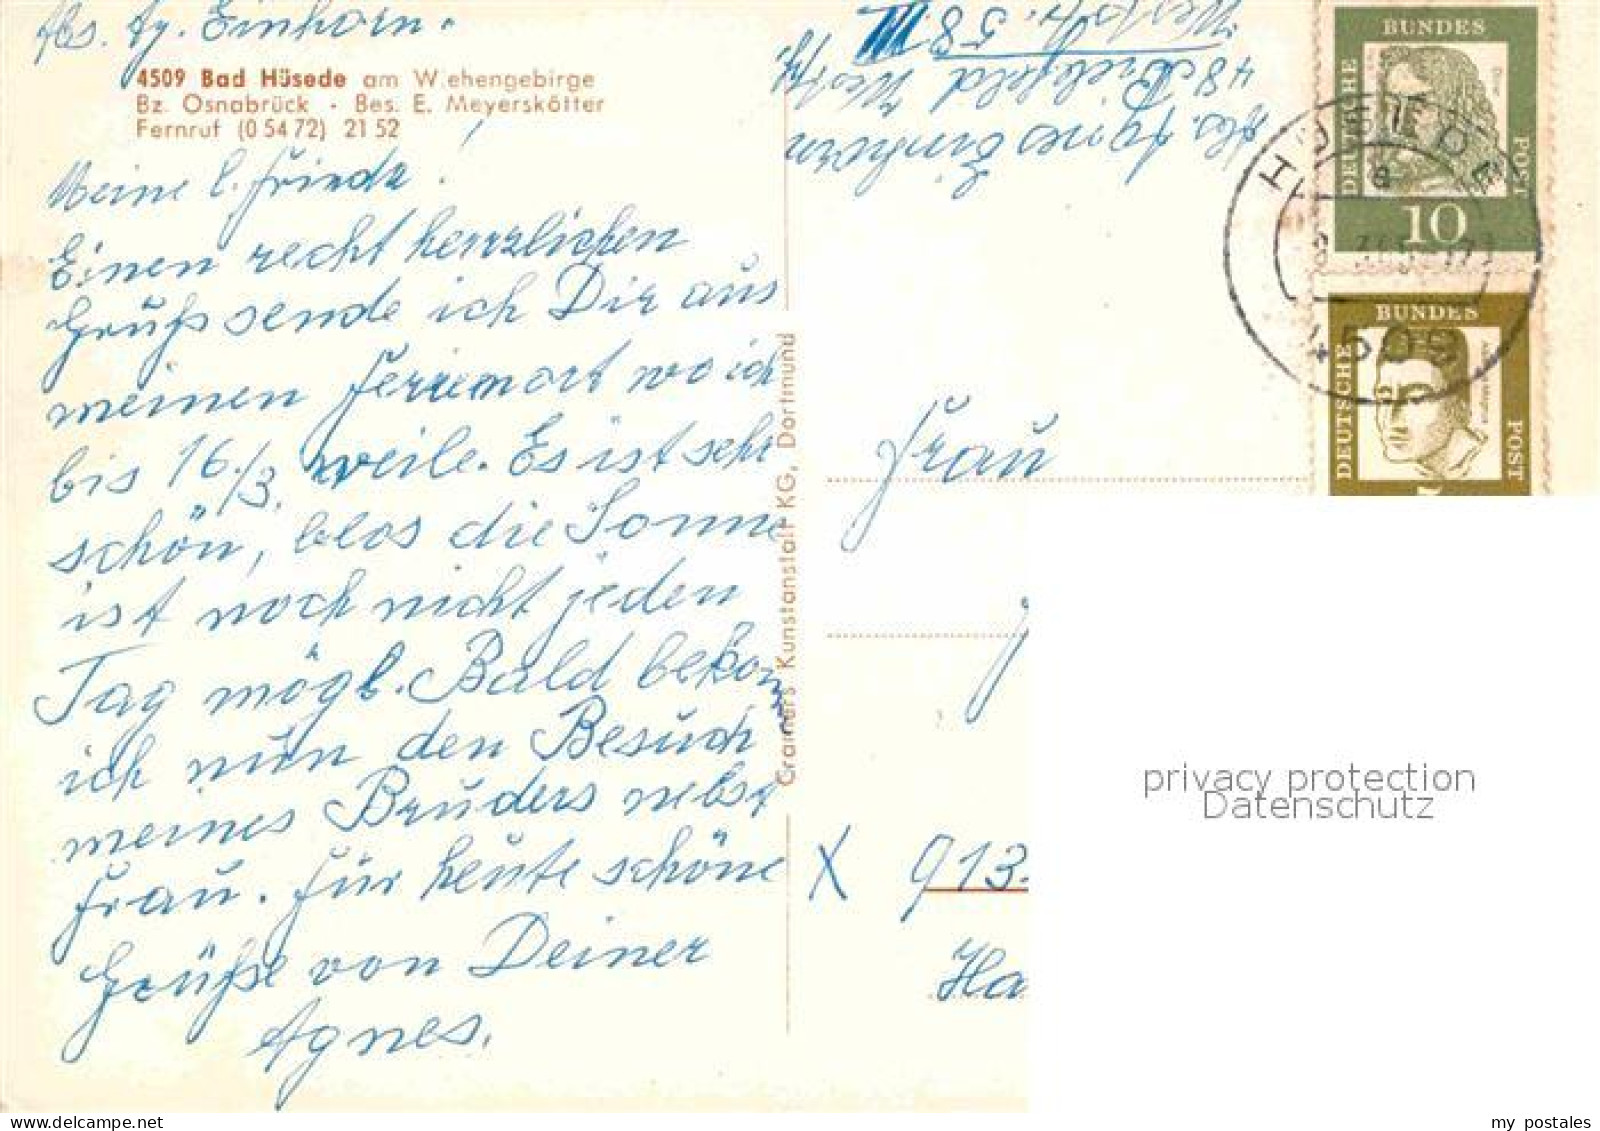 Abs. Ag. Einhorn.
4509 Bad Hüsede am Wiehengebirge
Bz. Osnabrück - Bes. E. Meyerskötter
Fernruf (0 54 72) 21 52
Meine l. Friedr!
Einen recht herrzlichen
Gruß sende ich Dir aus
meinen Ferienort wo ich
bis 16./3. weile. Es ist sehr
schön, blos die Sonne
ist noch nicht jeden
Tag mögl. Bald bekom
ich nun den Besuch
meines Bruders nebst
Frau. Für heute schöne
Grüße von Deiner
Agnes.
Cramers Kunstanstalt KG, Dortmund
Abs. Agnes Einhorn
48 Bielefeld Westf.
58 III
DEUTSCHE BUNDES POST
10
HÜSEDE
a
4509
DEUTSCHE BUNDES POST
Frau
X 913.
Ha
privacy protection
Datenschutz
my postales